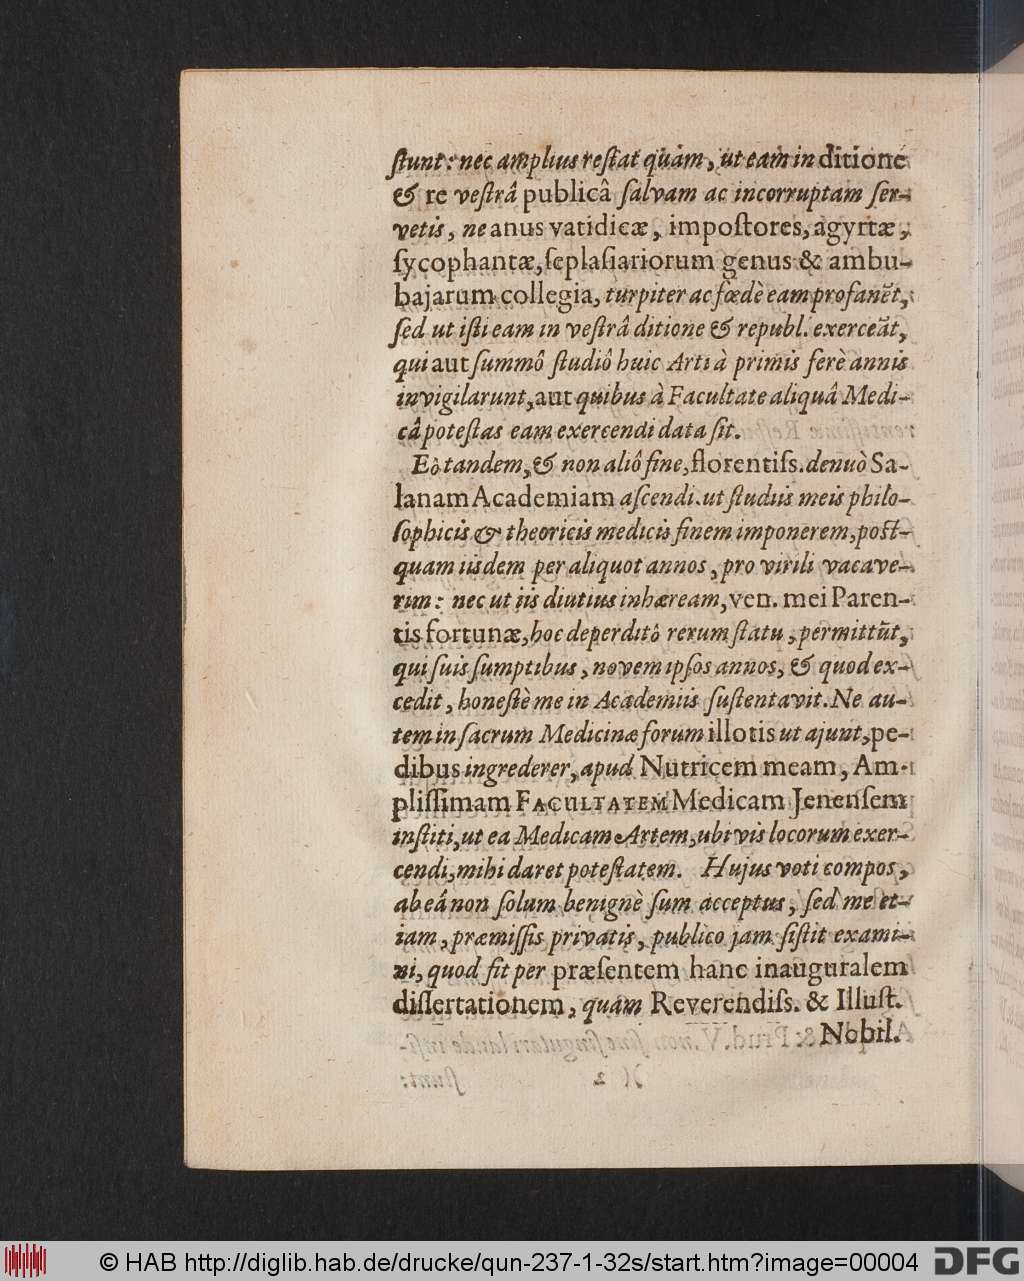 ſtunt: nec amplius reſtat quàm, ut eam in ditione
& re veſtrâ publicâ ſalvam ac incorruptam ſer-
vetis, ne anus vatidicæ, impoſtores, agyrtæ,
ſycophantæ, ſeplaſiariorum genus & ambu-
bajarum collegia, turpiter ac fœdè eam profanẽt,
ſed ut iſti eam in veſtrâ ditione & republ. exerceãt,
qui aut ſummô ſtudiô huic Arti à primis ferè annis
invigilarunt, aut quibus à Facultate aliquâ Medi-
câ poteſtas eam exercendi data ſit.
Eò tandem, & non aliô fine, florentiſs. denuò Sa-
lanam Academiam aſcendi, ut ſtudiis meis philo-
ſophicis & theoricis medicis finem imponerem, poſt-
quam iisdem per aliquot annos, pro virili vacave-
rim: nec ut iis diutius inhæream, ven. mei Paren-
tis fortunæ, hoc deperditô rerum ſtatu, permittũt,
qui ſuis ſumptibus, novem ipſos annos, & quod ex-
cedit, honeſtè me in Academiis ſuſtentavit. Ne au-
tem in ſacrum Medicinæ forum illotis ut ajunt, pe-
dibus ingrederer, apud Nutricem meam, Am-
pliſſimam FACULTATEM Medicam Jenenſem
inſtiti, ut ea Medicam Artem, ubi vis locorum exer-
cendi, mihi daret poteſtatem. Hujus voti compos,
ab eâ non ſolum benignè ſum acceptus, ſed me et-
iam, præmiſſis privatis, publico jam ſiſtit exami-
ni, quod fit per præſentem hanc inauguralem
diſſertationem, quam Reverendiſs. & Illuſt.
Nobil.
© HAB http://diglib.hab.de/drucke/qun-237-1-32s/start.htm?image=00004
DFG